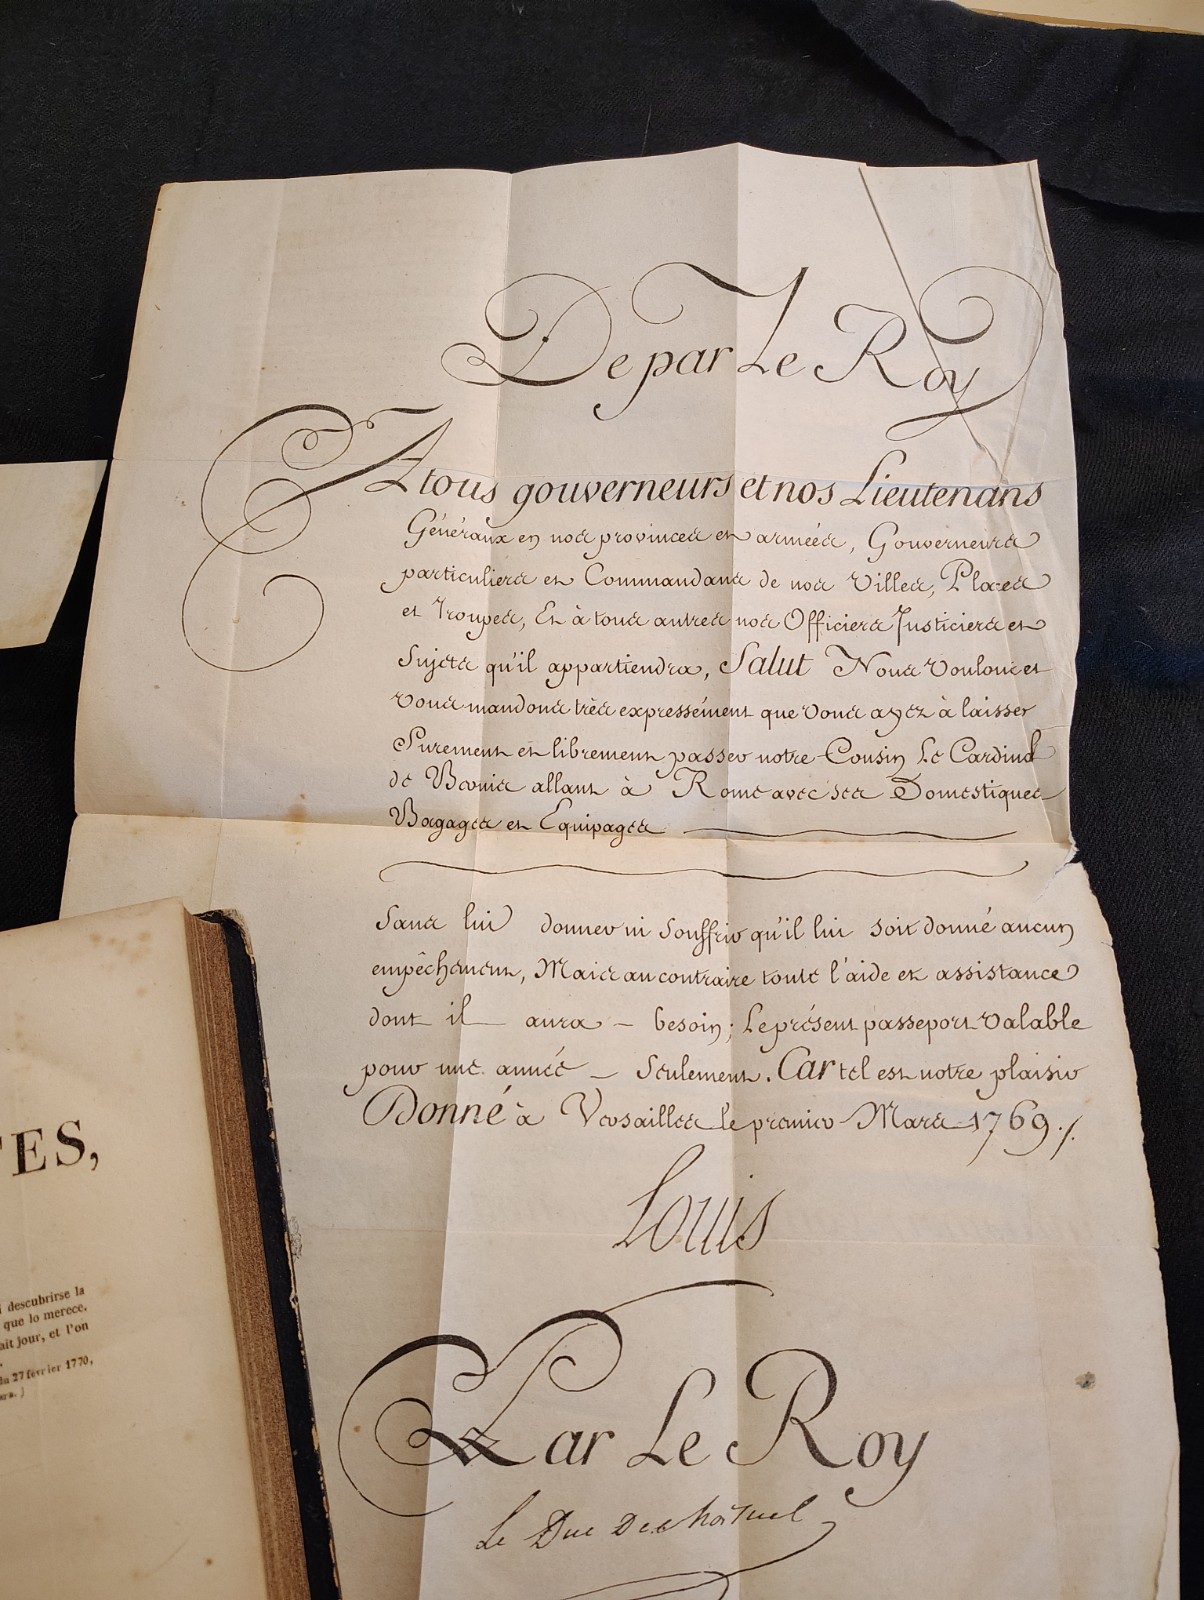 De par Le Roy
A tous gouverneurs et nos Lieutenans
Généraux en nos provinces et armées, Gouverneurs
particuliers et Commandans de nos Villes, Places
et Troupes, Et à tous autres nos Officiers Justiciers et
Sujets qu'il appartiendra, Salut Nous Voulons et
vous mandons très expressément que vous ayez à laisser
Surement et librement passer notre Cousin Le Cardinal
de Bernis allant à Rome avec ses Domestiques
Bagages et Equipages
Sans lui donner ni Souffrir qu'il lui soit donné aucun
empêchement, Mais au contraire toute l'aide et assistance
dont il aura besoin; Le présent passeport valable
pour une année Seulement. Car tel est notre plaisir
Donné à Versailles le premier Mars 1769 ./.
Louis
Par Le Roy
Le Duc De choiseul
TES,
descubrirse la
que lo merece.
ait jour, et l'on
du 27 février 1770,
ara.)